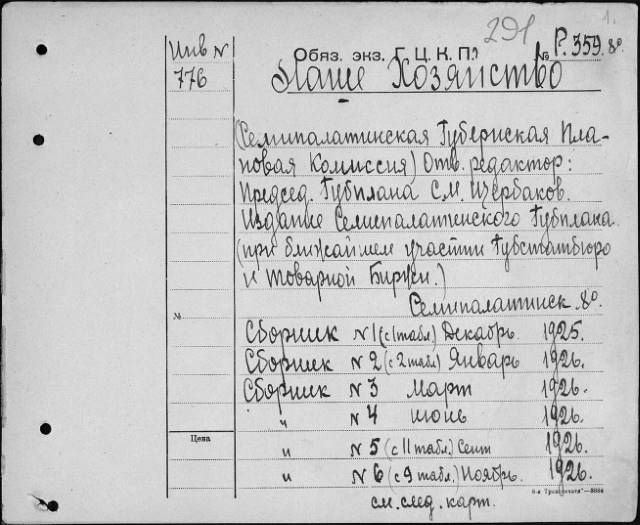 291
1.
Инв N
776
Обяз. экз. Г. Ц. К. П.
№ Р. 359. 8º
Наше Хозяйство
(Семипалатинская Губернская Пла-
новая Комиссия) Отв. редактор:
Председ. Губплана С.М. Щербаков.
Издание Семипалатинского Губплана
(при ближайшем участии Губстатбюро
и товарной Биржи.)
Семипалатинск. 8º.
№
Сборник N 1 (с 1 табл.) Декабрь. 1925.
Сборник N 2 (с 2 табл.) Январь 1926.
Сборник N 3 Март 1926.
" N 4 Июнь 1926.
Цена
" N 5 (с 11 табл.) Сент 1926.
" N 6 (с 9 табл.) Ноябрь. 1926.
см. след. карт.